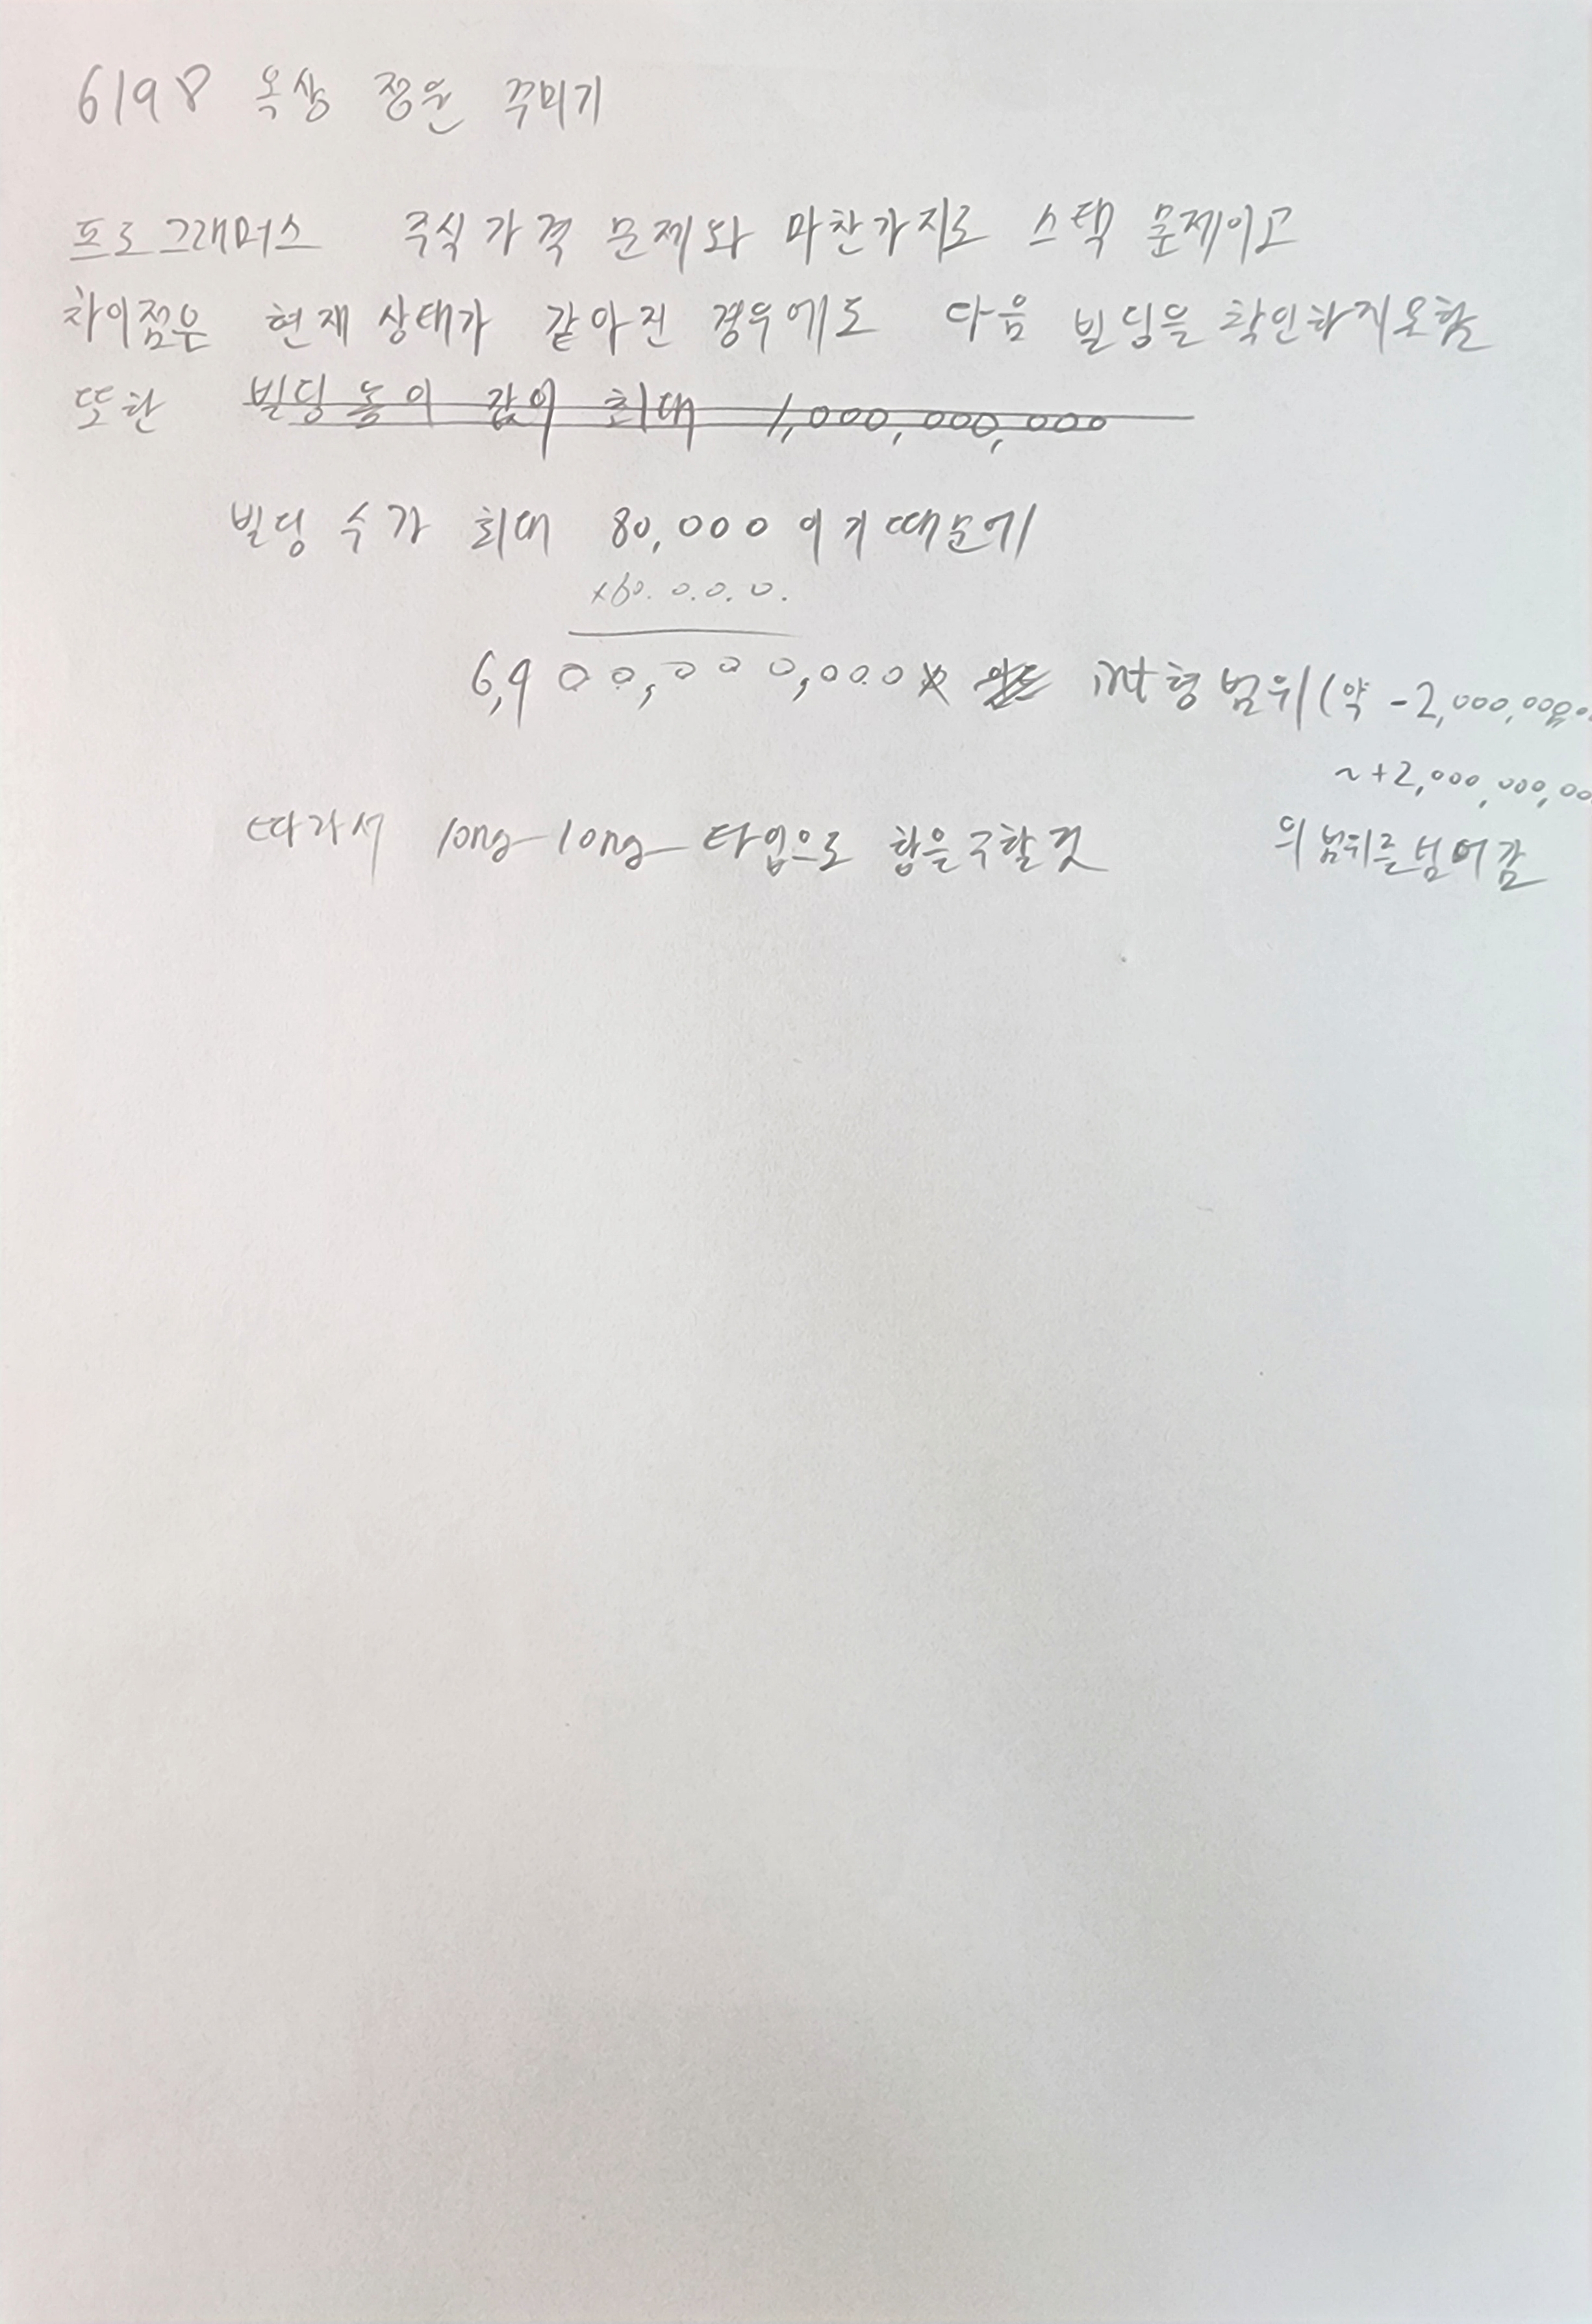 6198 옥상 정원 꾸미기
프로그래머스 주식가격 문제와 마찬가지로 스택 문제이고
차이점은 현재 상태가 같아진 경우에도 다음 빌딩을 확인하지 못함
또한 빌딩 높이 값이 최대 1,000,000,000
빌딩 수가 최대 80,000 이기 때문에
6,400,000,000 int형 범위(약 -2,000,000
~+2,000,000,00
의 범위를 넘어감
따라서 long long 타입으로 합을 구할 것